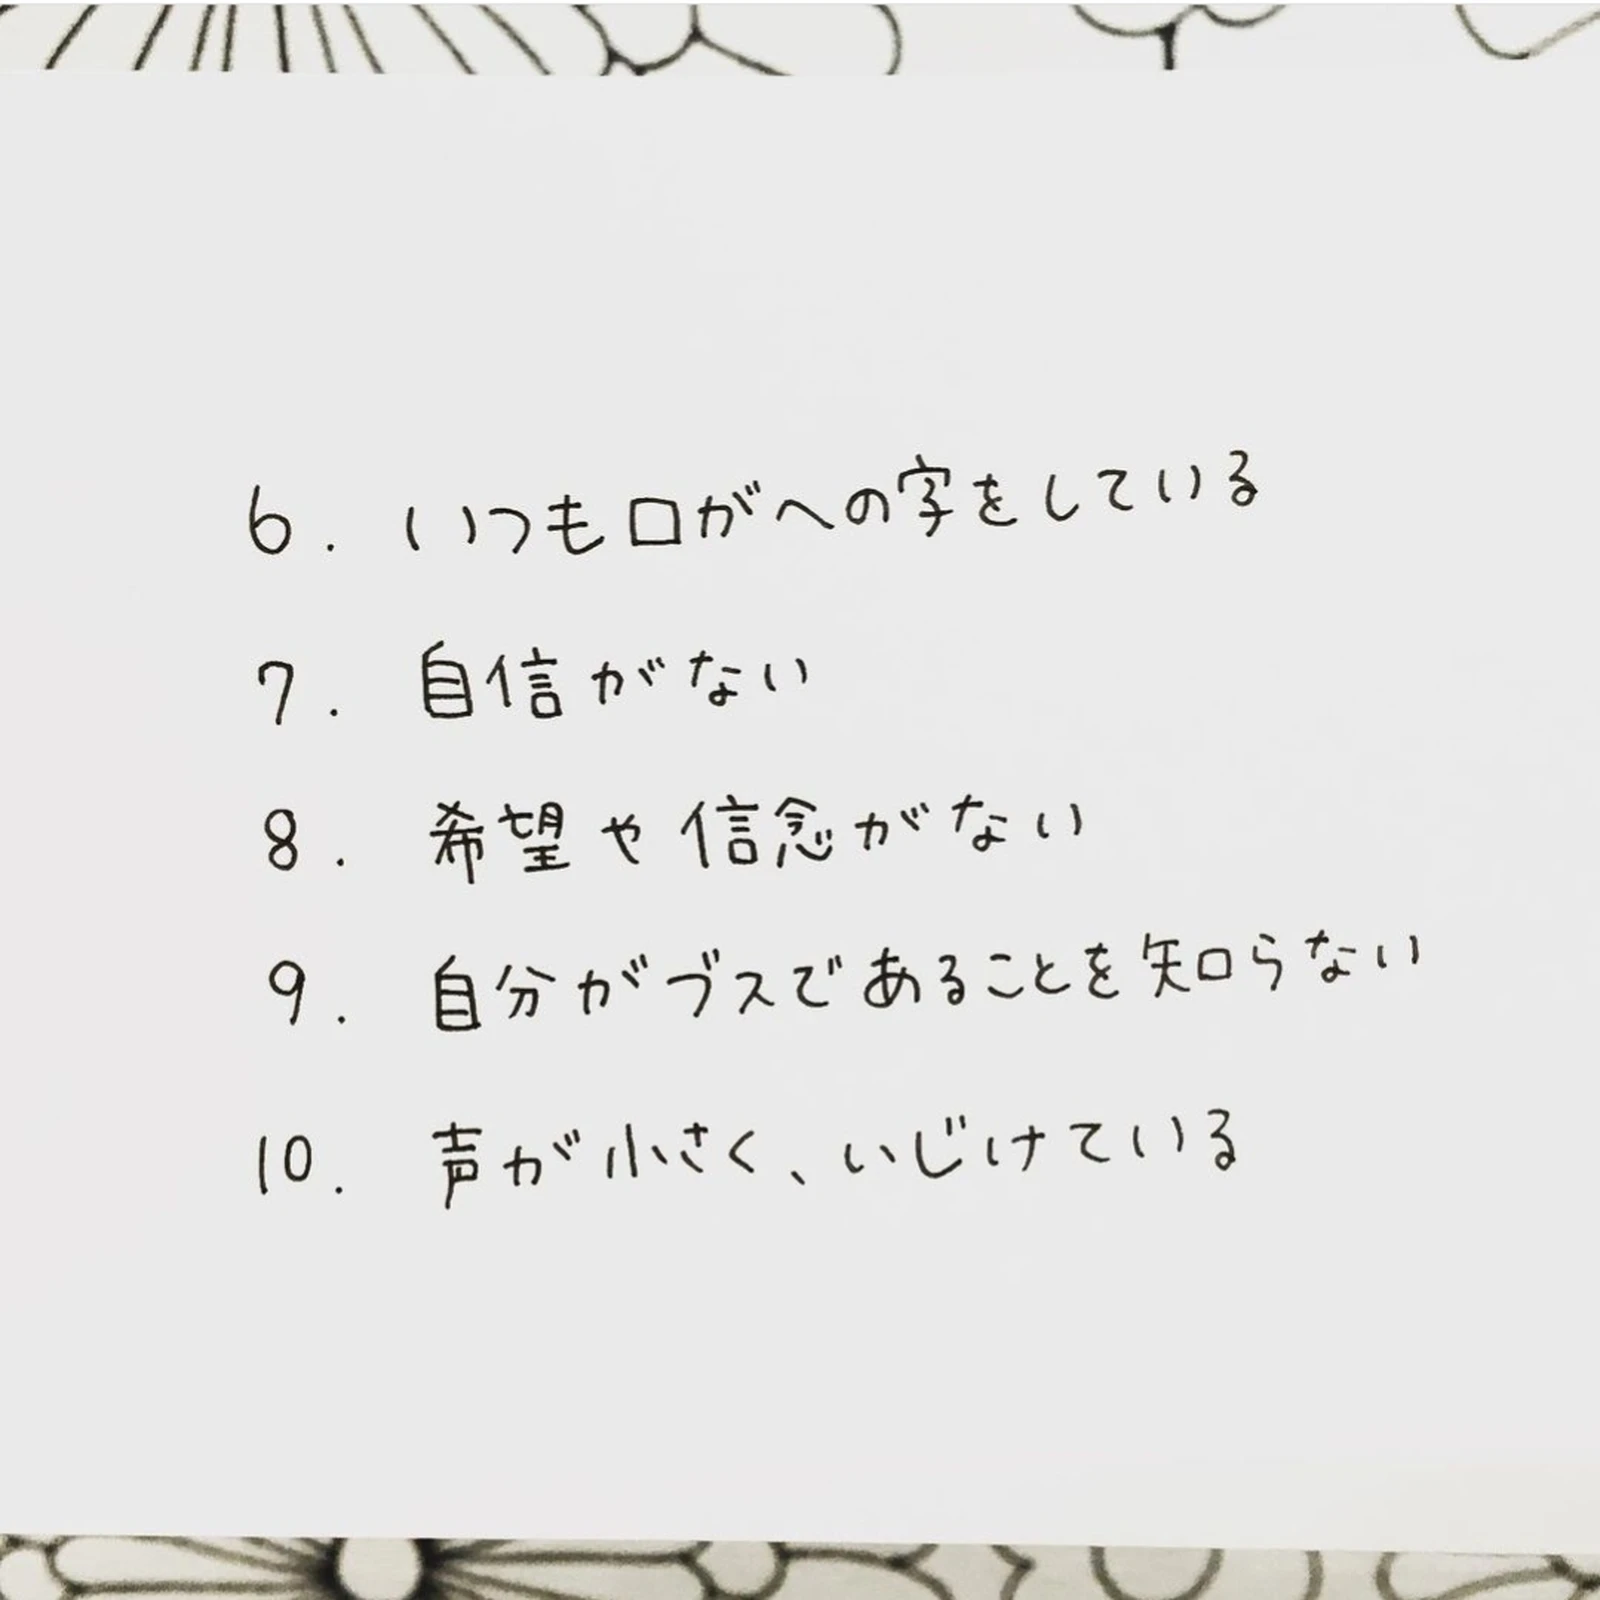 6. いつも口がへの字をしている
7. 自信がない
8. 希望や信念がない
9. 自分がブスであることを知らない
10. 声が小さく、いじけている